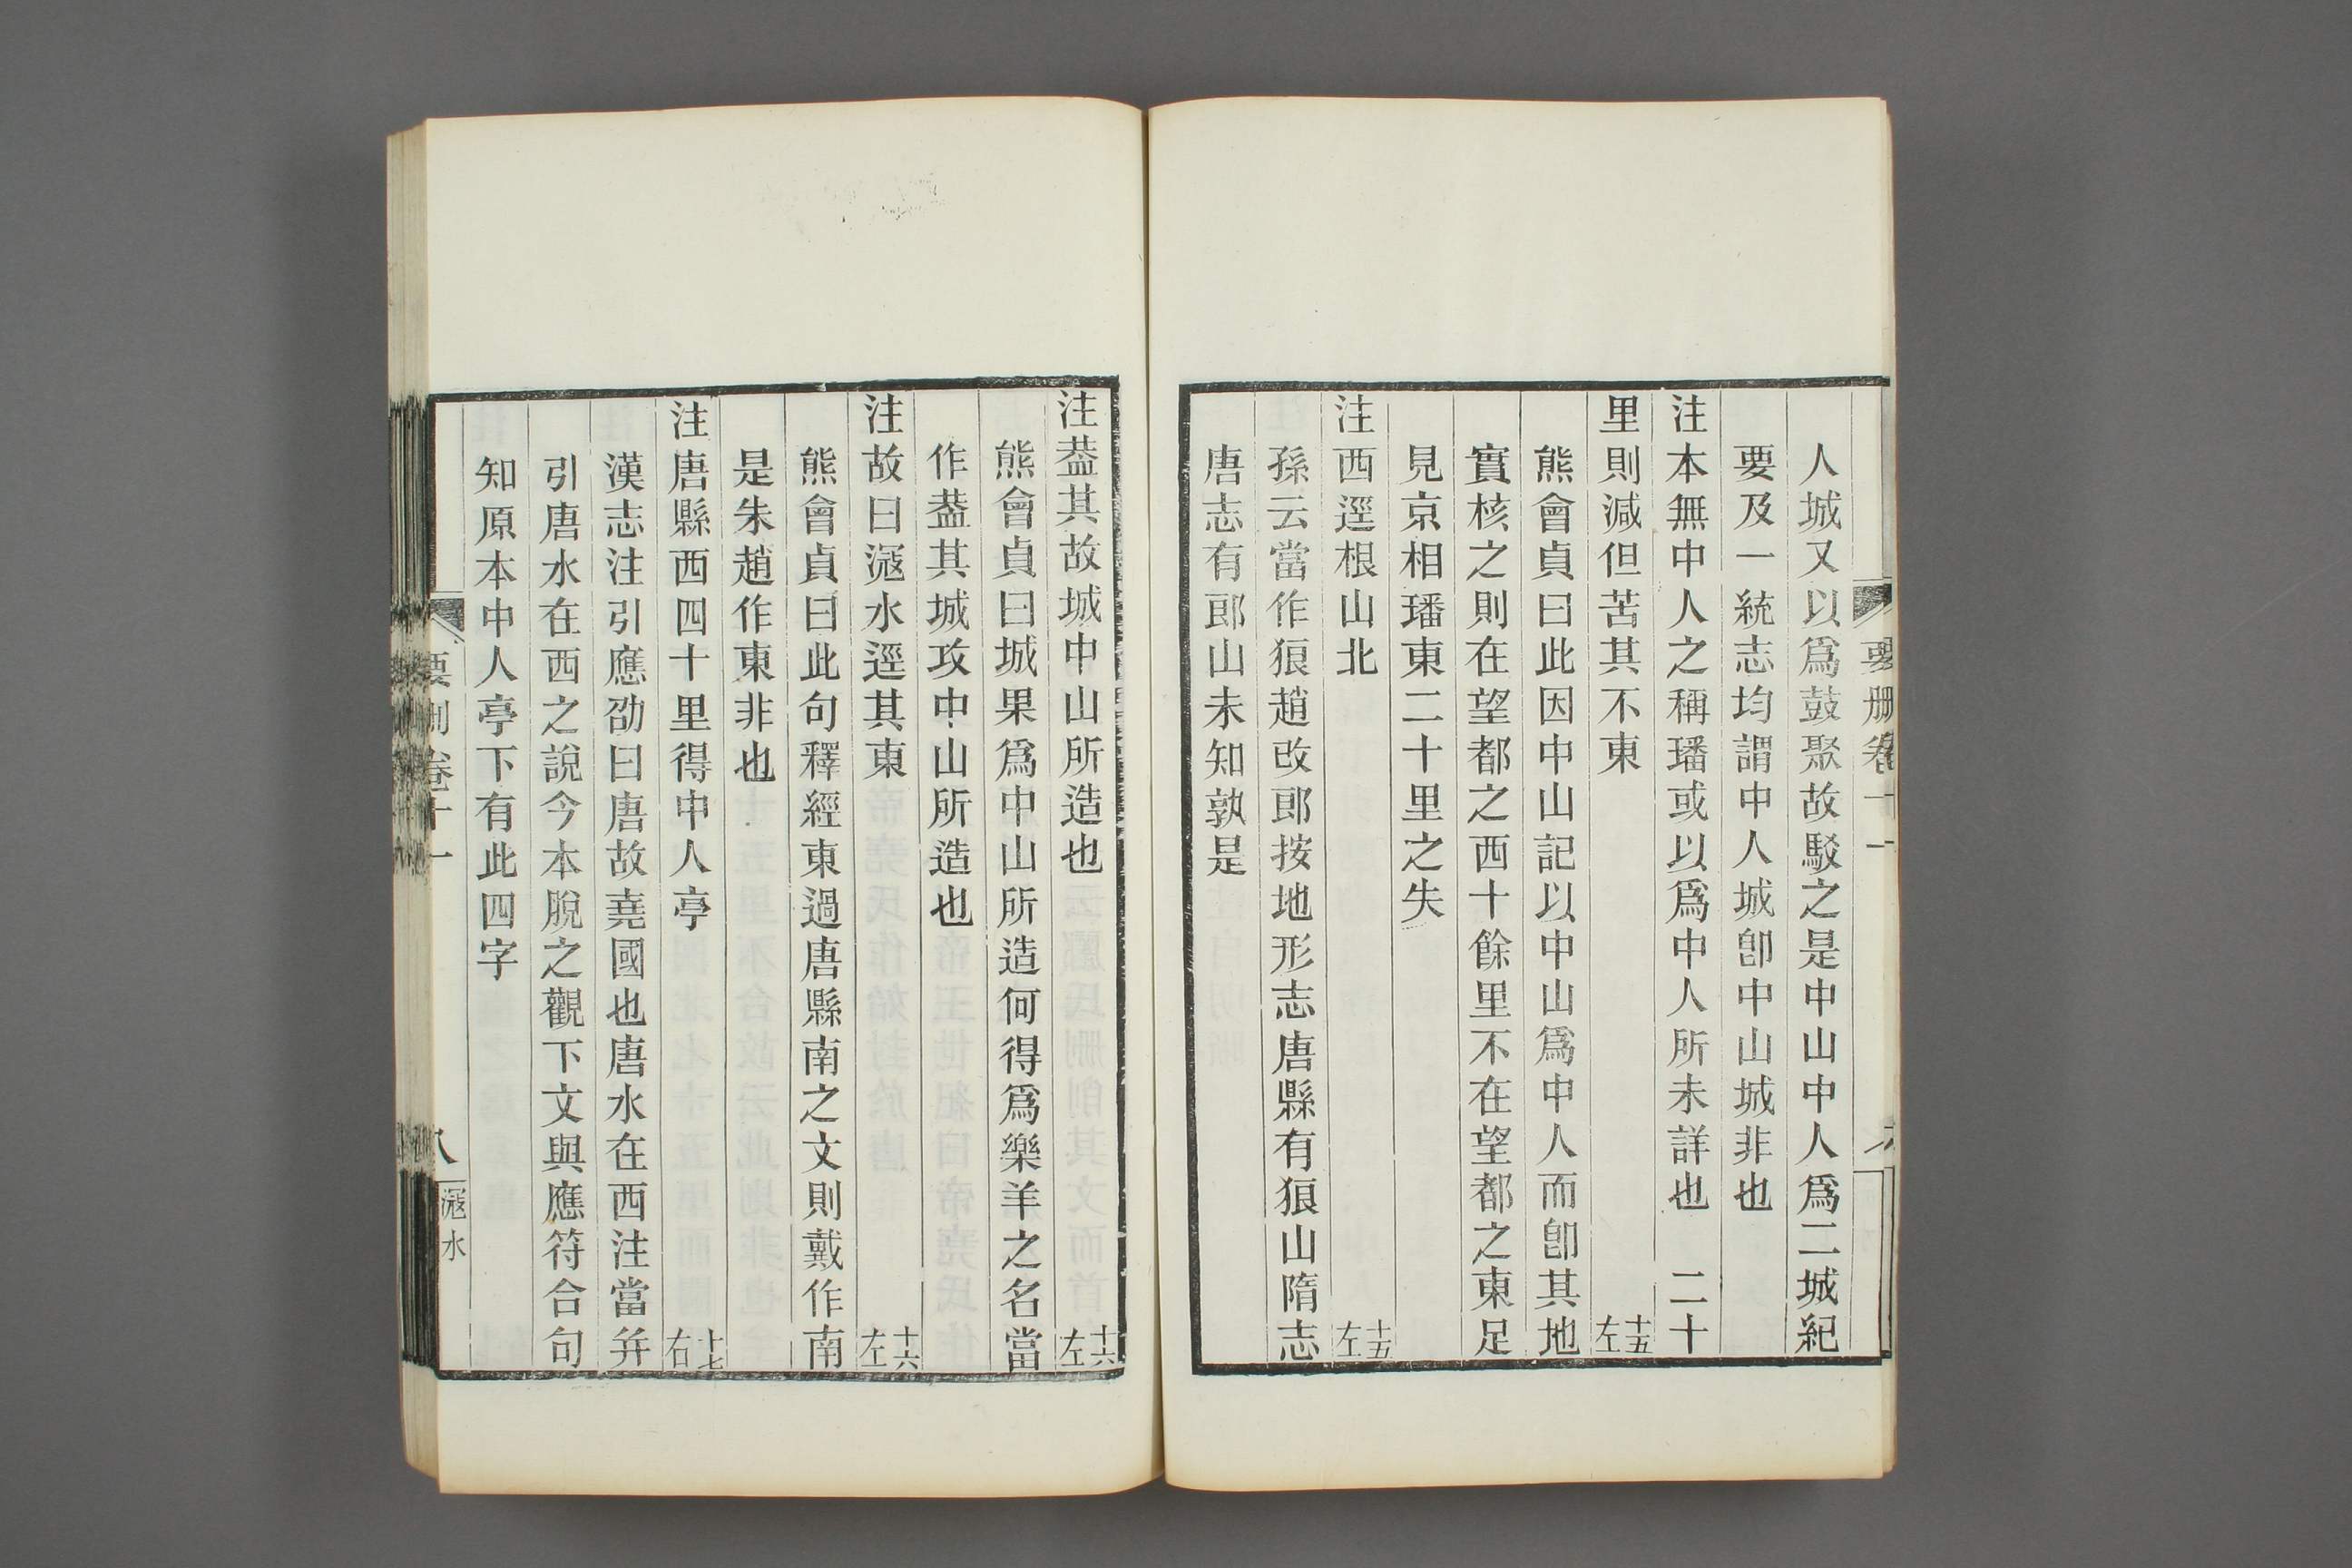 要删卷十一
人城又以爲鼓聚故駁之是中山中人爲二城紀
要及一統志均謂中人城卽中山城非也
注本無中人之稱璠或以爲中人所未詳也　二十
里則減但苦其不東　十五左
熊會貞曰此因中山記以中山爲中人而卽其地
實核之則在望都之西十餘里不在望都之東足
見京相璠東二十里之失
注西逕根山北　十五左
孫云當作狼趙改郎按地形志唐縣有狼山隋志
唐志有郎山未知孰是
注葢其故城中山所造也　十六左
熊會貞曰城果爲中山所造何得爲樂羊之名當
作葢其城攻中山所造也
注故曰滱水逕其東　十六左
熊會貞曰此句釋經東過唐縣南之文則戴作南
是朱趙作東非也
注唐縣西四十里得中人亭　十七右
漢志注引應劭曰唐故堯國也唐水在西注當并
引唐水在西之說今本脫之觀下文與應符合句
知原本中人亭下有此四字
要删卷十一　八　滱水